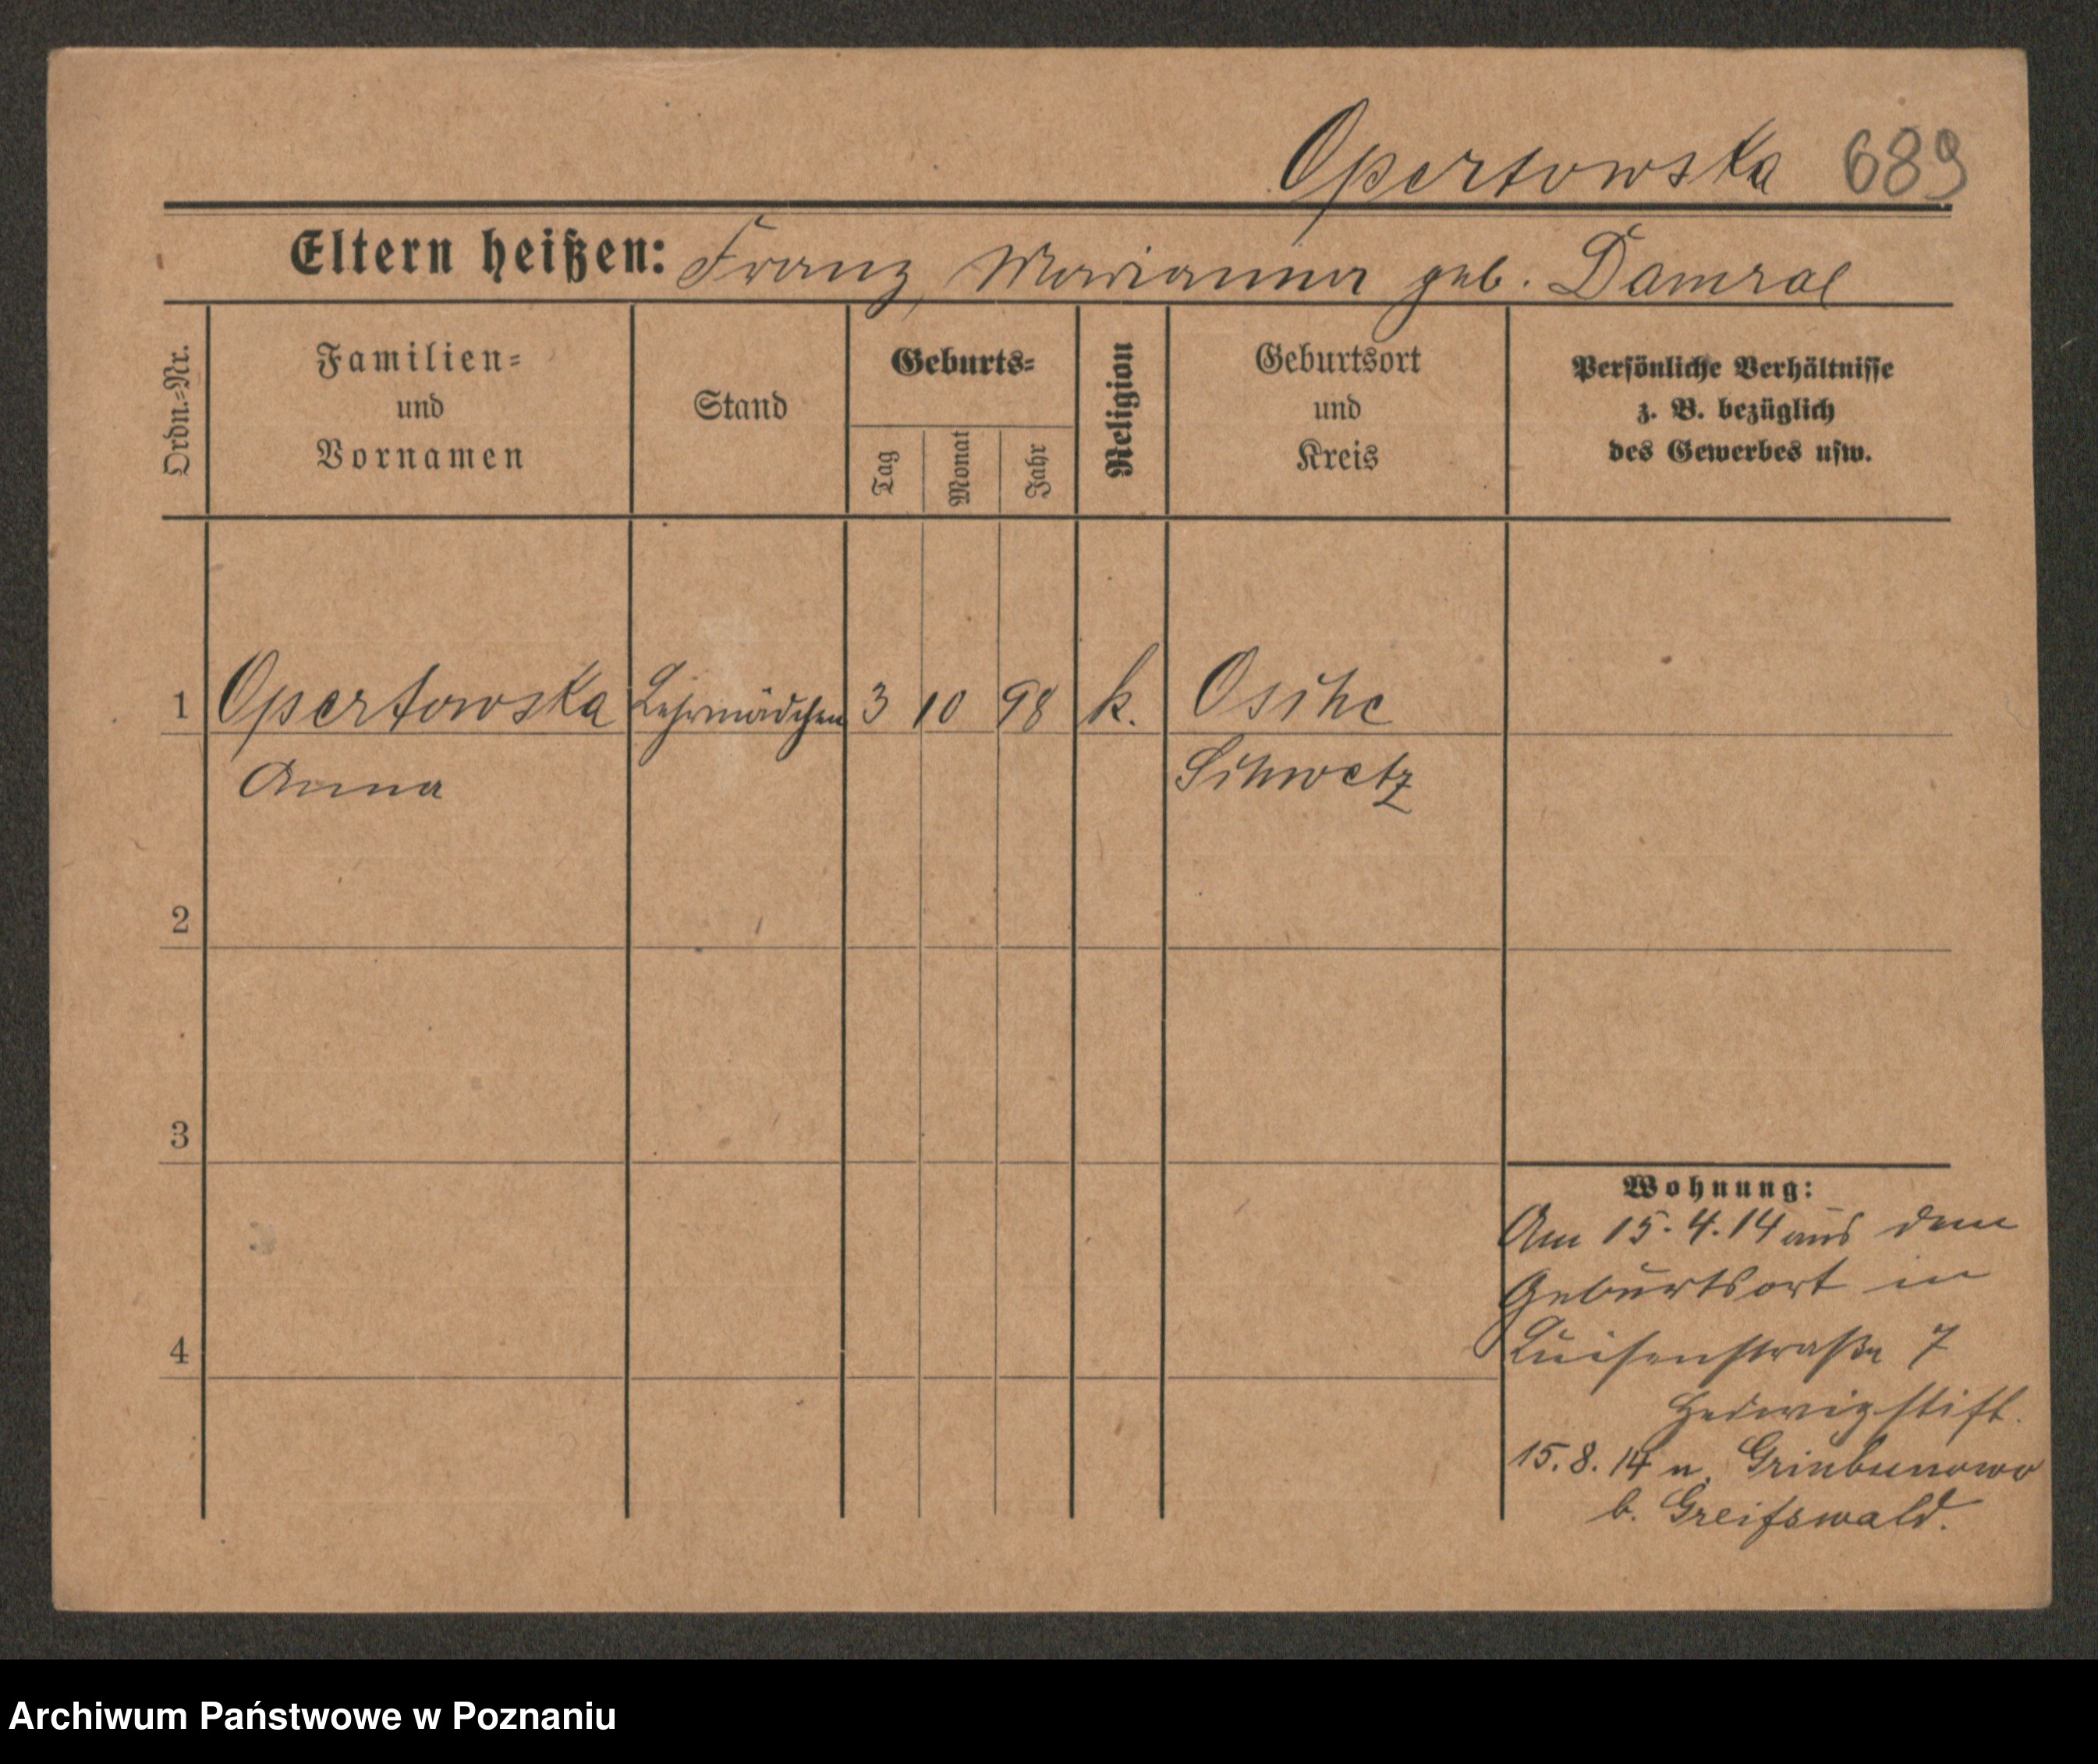 Opertowska 689
Eltern heißen: Franz, Marianna geb. Damral
Ordn.-Nr.
Familien- und Vornamen
Stand
Geburts-
Tag
Monat
Jahr
Religion
Geburtsort und Kreis
Persönliche Verhältnisse
z. B. bezüglich
des Gewerbes usw.
1 Opertowska Lehrmädchen 3 10 98 k. Osche
Anna Schwetz
2
3
4
Wohnung:
Am 15.4.14 aus dem
Geburtsort in
Luisenstraße 7
Hedwigstift.
15.8.14 n.
b. Greifswald.
Archiwum Państwowe w Poznaniu